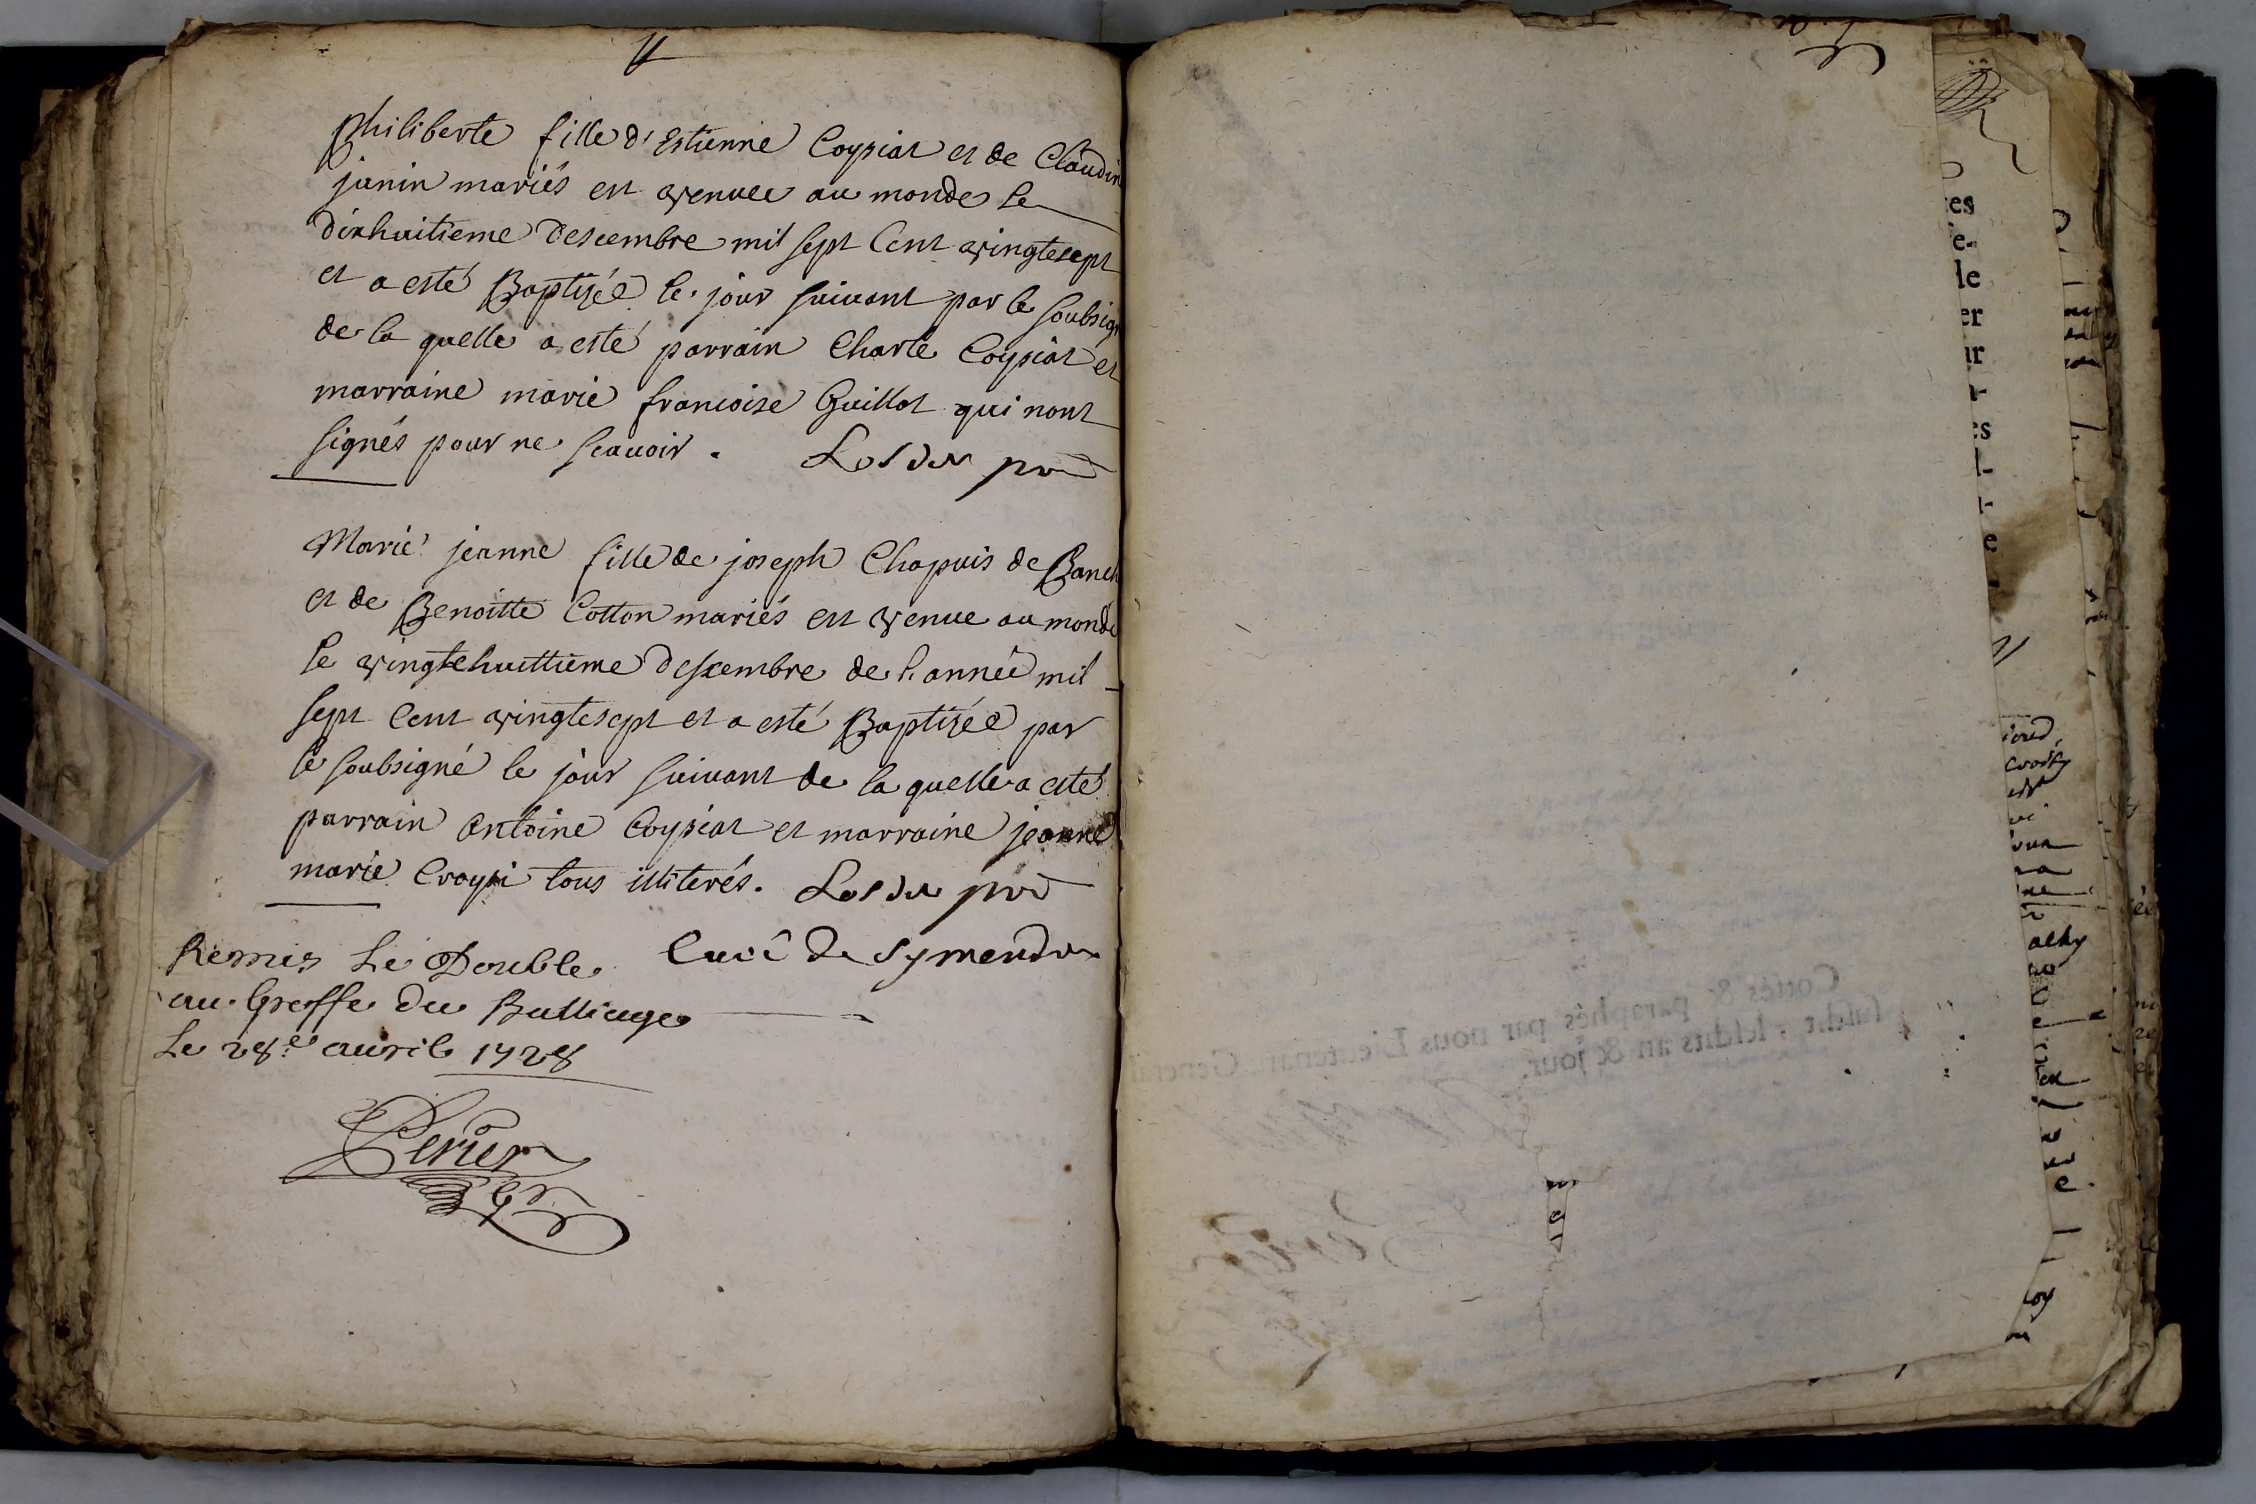 Philiberte fille d'Estienne Coypiat et de Claudin
janin mariés est venuee au monde le
dixhuitieme descembre mil sept cent vingtesept
et a esté Baptisée le jour suivant par le soubsign
de la quelle a esté parrain Charle Coypiat et
marraine marie francoise Guillot qui nont
signés pour ne scauoir.
Marie jeanne fille de joseph Chapuis de Banch
et de Benoitte Cotton mariés est venue au monde
le vingtehuittieme descembre de l'année mil
sept cent vingtesept et a esté Baptisée par
le soubsigné le jour suivant de la quelle a esté
parrain antoine Coypiat et marraine jeanne
marie tous illiterés.
Curé de Symendre
Remis Le Double
au Greffe du Balliage
Le 28e. auril 1728
Perier
Cottés & paraphés par nous Lieutenant General
susdit, lesdits an & jour.